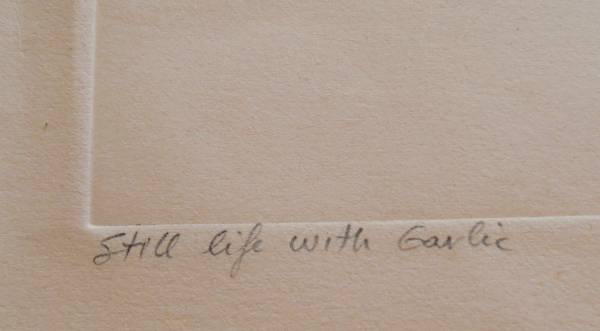 Still life with Garlic